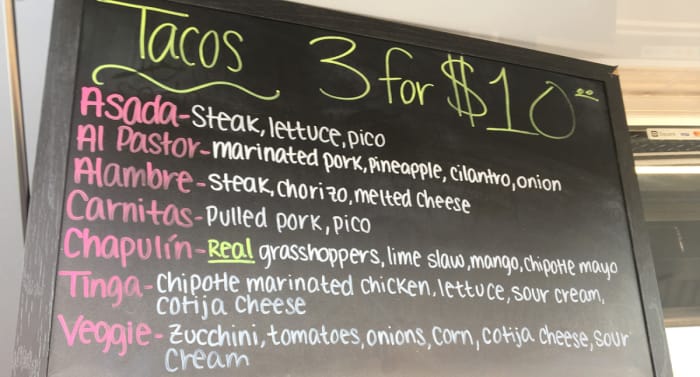 Tacos 3 for $10.00
Asada-steak, lettuce, pico
Al Pastor-marinated pork, pineapple, cilantro, onion
Alambre-steak, chorizo, melted cheese
Carnitas-pulled pork, pico
Chapulín-Real grasshoppers, lime slaw, mango, chipotle mayo
Tinga-chipotle marinated chicken, lettuce, sour cream,
cotija cheese
Veggie-zucchini, tomatoes, onions, corn, cotija cheese, sour
cream
Square VISA